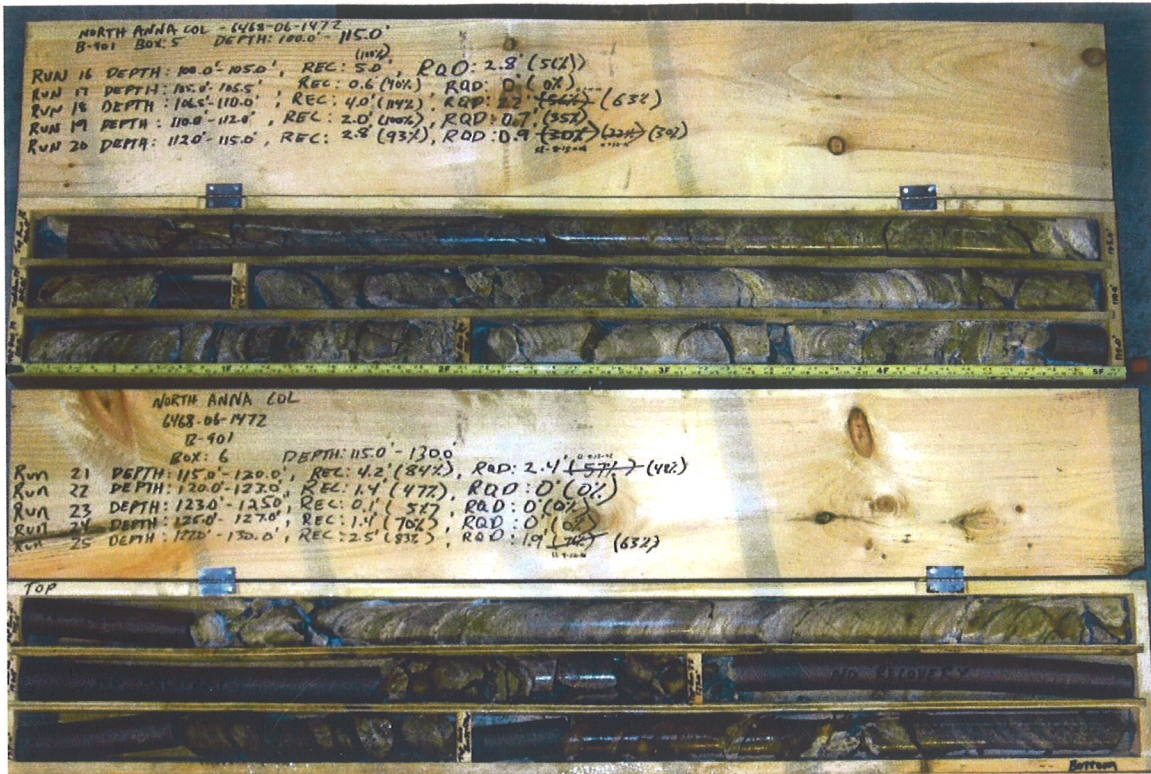 NORTH ANNA COL - 6468-06-1472
B-901 BOX: 5 DEPTH: 100.0' - 115.0'
(100%)
RUN 16 DEPTH: 100.0'-105.0', REC: 5.0', RQD: 2.8' (56%)
RUN 17 DEPTH: 105.0'-106.5', REC: 0.6 (40%), RQD: 0' (0%)
RUN 18 DEPTH: 106.5'-110.0', REC: 4.0' (114%), RQD: 2.2' (56%) (63%)
RUN 19 DEPTH: 110.0'-112.0', REC: 2.0' (100%), RQD: 0.7' (35%)
RUN 20 DEPTH: 112.0'-115.0', REC: 2.8' (93%), RQD: 0.9 (30%) (30%)
105.0'
110.0'
1F 2F 3F 4F 5F
NORTH ANNA COL
6468-06-1472
B-901
BOX: 6 DEPTH: 115.0' - 130.0'
Run 21 DEPTH: 115.0'-120.0', REC: 4.2' (84%), RQD: 2.4' (57%) (48%)
Run 22 DEPTH: 120.0'-123.0', REC: 1.4' (47%), RQD: 0' (0%)
Run 23 DEPTH: 123.0'-125.0', REC: 0.1' (5%), RQD: 0' (0%)
Run 24 DEPTH: 125.0'-127.0', REC: 1.4' (70%), RQD: 0' (0%)
Run 25 DEPTH: 127.0'-130.0', REC: 2.5' (83%), RQD: 1.9' (76%) (63%)
TOP
NO RECOVERY
Bottom